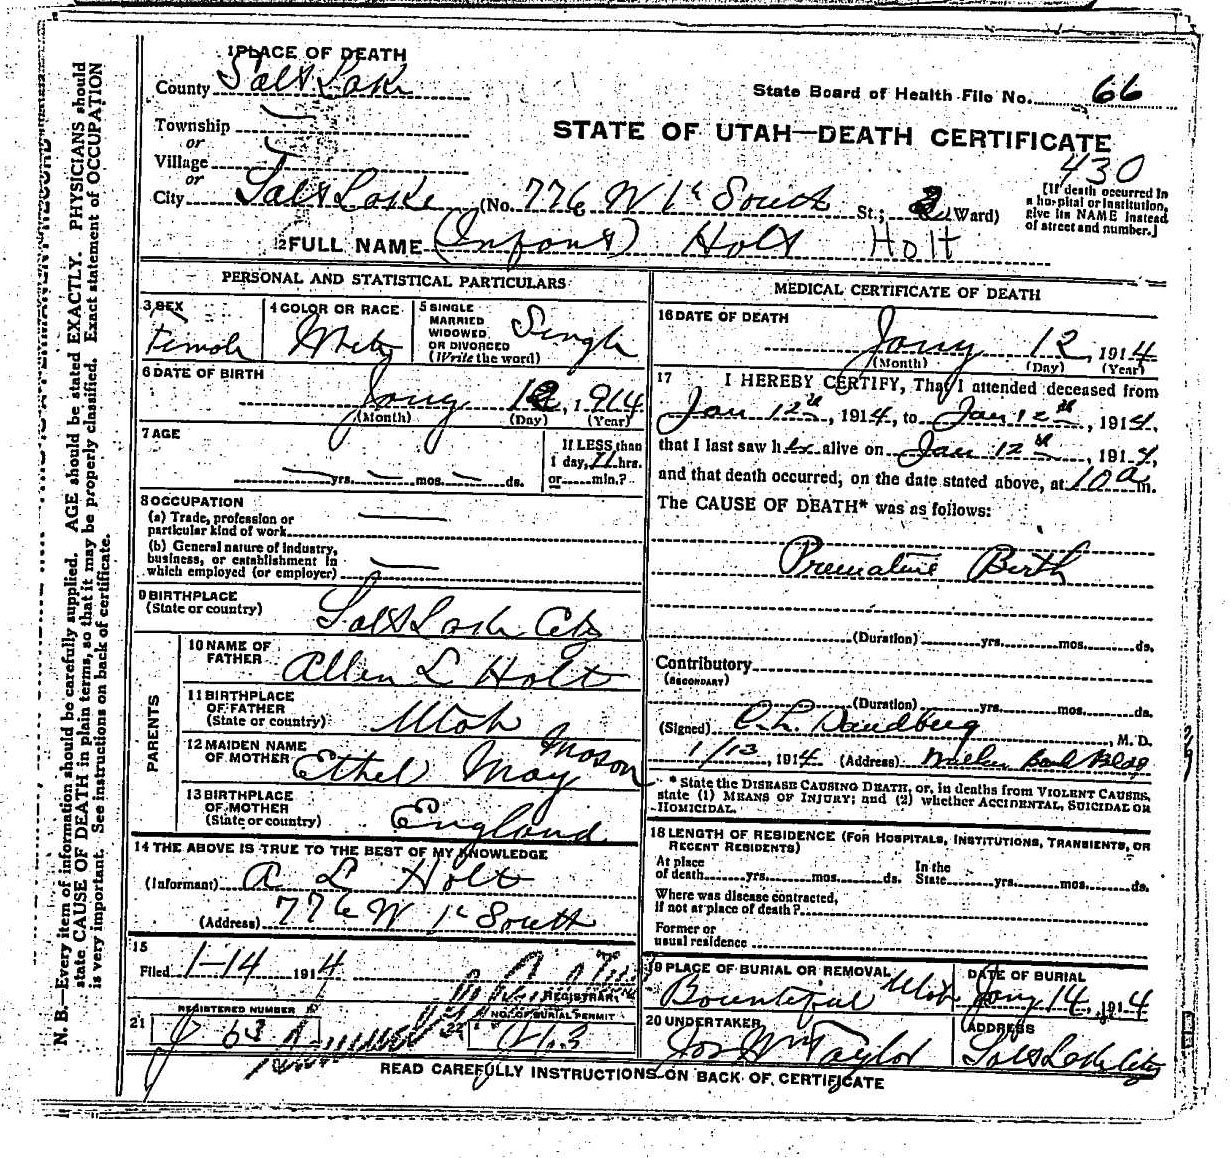 1 PLACE OF DEATH
County Salt Lake
State Board of Health File No. 66
Township
or
STATE OF UTAH—DEATH CERTIFICATE
Village
or
430
City Salt Lake (No. 776 W 1st South St.; 2 Ward)
[If death occurred in a hospital or institution, give its NAME instead of street and number.]
2 FULL NAME (Infant) Holt Holt
PERSONAL AND STATISTICAL PARTICULARS
3 SEX
Female
4 COLOR OR RACE
White
5 SINGLE
MARRIED
WIDOWED
OR DIVORCED
(Write the word)
Single
6 DATE OF BIRTH
Jany 12, 1914
(Month) (Day) (Year)
7 AGE
yrs. mos. ds.
If LESS than
1 day, 11 hrs.
or min.?
8 OCCUPATION
(a) Trade, profession or
particular kind of work
(b) General nature of industry,
business, or establishment in
which employed (or employer)
9 BIRTHPLACE
(State or country)
Salt Lake City
PARENTS
10 NAME OF
FATHER
Allen L Holt
11 BIRTHPLACE
OF FATHER
(State or country)
Utah
12 MAIDEN NAME
OF MOTHER
Ethel May Mason
13 BIRTHPLACE
OF MOTHER
(State or country)
England
14 THE ABOVE IS TRUE TO THE BEST OF MY KNOWLEDGE
(Informant) A L Holt
(Address) 776 W 1st South
15
Filed 1-14 1914
REGISTRAR
21
REGISTERED NUMBER
63
22
NO. OF BURIAL PERMIT
MEDICAL CERTIFICATE OF DEATH
16 DATE OF DEATH
Jany 12, 1914
(Month) (Day) (Year)
17 I HEREBY CERTIFY, That I attended deceased from
Jan 12th, 1914, to Jan 12th, 1914,
that I last saw her alive on Jan 12th, 1914,
and that death occurred, on the date stated above, at 10 a m.
The CAUSE OF DEATH* was as follows:
Premature Birth
(Duration) yrs. mos. ds.
Contributory
(SECONDARY)
(Duration) yrs. mos. ds.
(Signed) C. L. Sandberg, M. D.
1/13, 1914 (Address) Walker Bank Bldg
* State the DISEASE CAUSING DEATH, or, in deaths from VIOLENT CAUSES,
state (1) MEANS OF INJURY; and (2) whether ACCIDENTAL, SUICIDAL OR
HOMICIDAL.
18 LENGTH OF RESIDENCE (FOR HOSPITALS, INSTITUTIONS, TRANSIENTS, OR
RECENT RESIDENTS)
At place
of death yrs. mos. ds.
In the
State yrs. mos. ds.
Where was disease contracted,
if not at place of death?
Former or
usual residence
19 PLACE OF BURIAL OR REMOVAL
Bountiful Utah
DATE OF BURIAL
Jany 14, 1914
20 UNDERTAKER
Jos Wm Taylor
ADDRESS
Salt Lake City
READ CAREFULLY INSTRUCTIONS ON BACK OF CERTIFICATE
N. B.—Every item of information should be carefully supplied. AGE should be stated EXACTLY. PHYSICIANS should
state CAUSE OF DEATH in plain terms, so that it may be properly classified. Exact statement of OCCUPATION
is very important. See instructions on back of certificate.